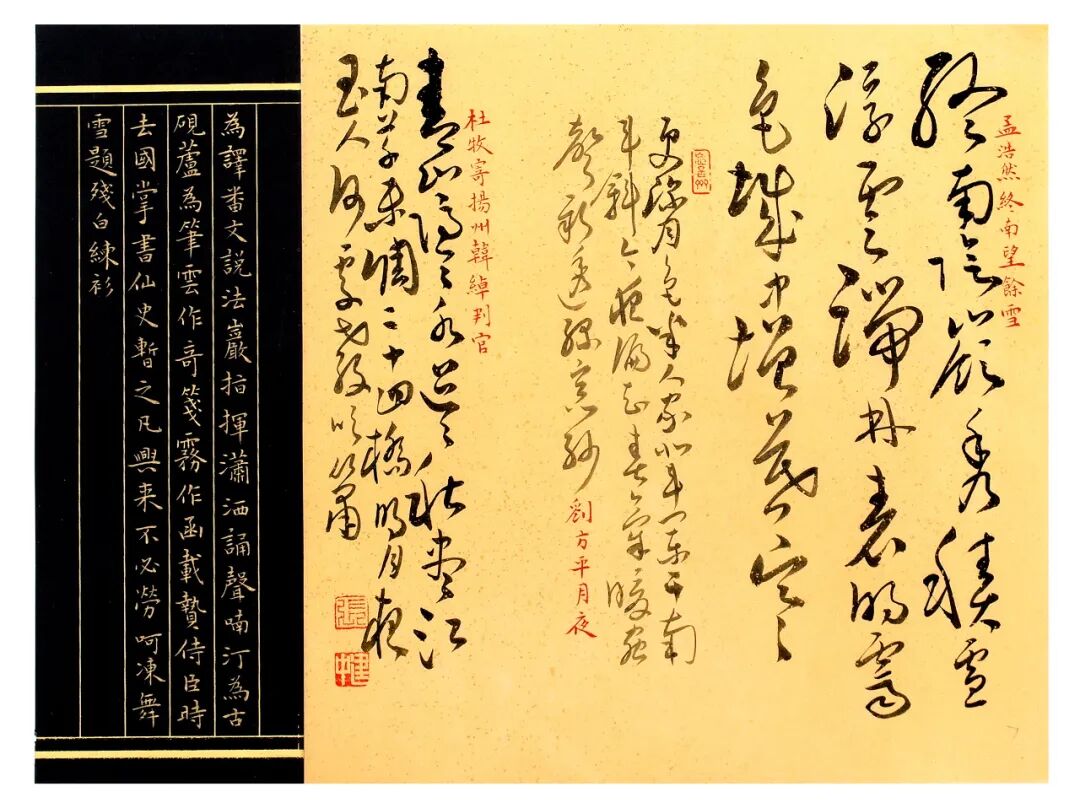 孟浩然終南望餘雪
終南陰嶺秀積雪
浮雲端林表明霽
色城中增暮寒
更深月色半人家北斗闌干南
斗斜今夜偏知春氣暖蟲
聲新透綠窗紗
劉方平月夜
杜牧寄揚州韓綽判官
青山隱々水迢々秋盡江
南草未凋二十四橋明月夜
玉人何處教吹簫
張
為譯番文說法巖指揮瀟洒誦聲喃汀為古
硯蘆為筆雲作奇箋霧作函載贄侍臣時
去國掌書仙史暫之凡興来不必勞呵凍舞
雪題殘白練衫